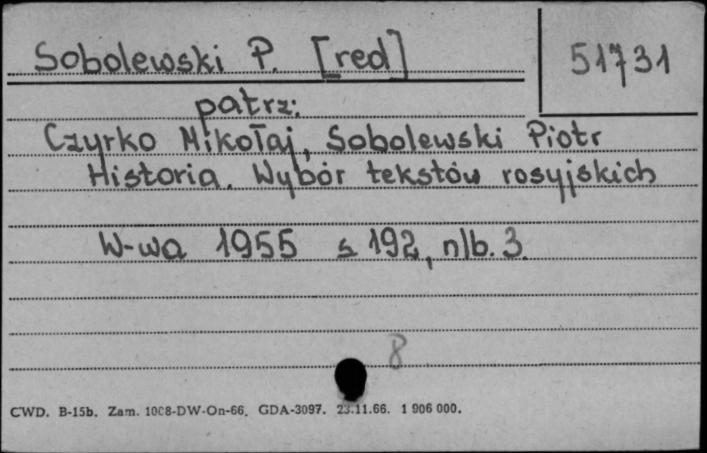 Sobolewski P. [red]
51731
patrz:
Czyrko Mikołaj, Sobolewski Piotr
Historia. Wybór tekstów rosyjskich
W-wa 1955 s 192, nlb. 3.
8
CWD. B-15b. Zam. 1008-DW-On-66. GDA-3097. 23.11.66. 1 906 000.